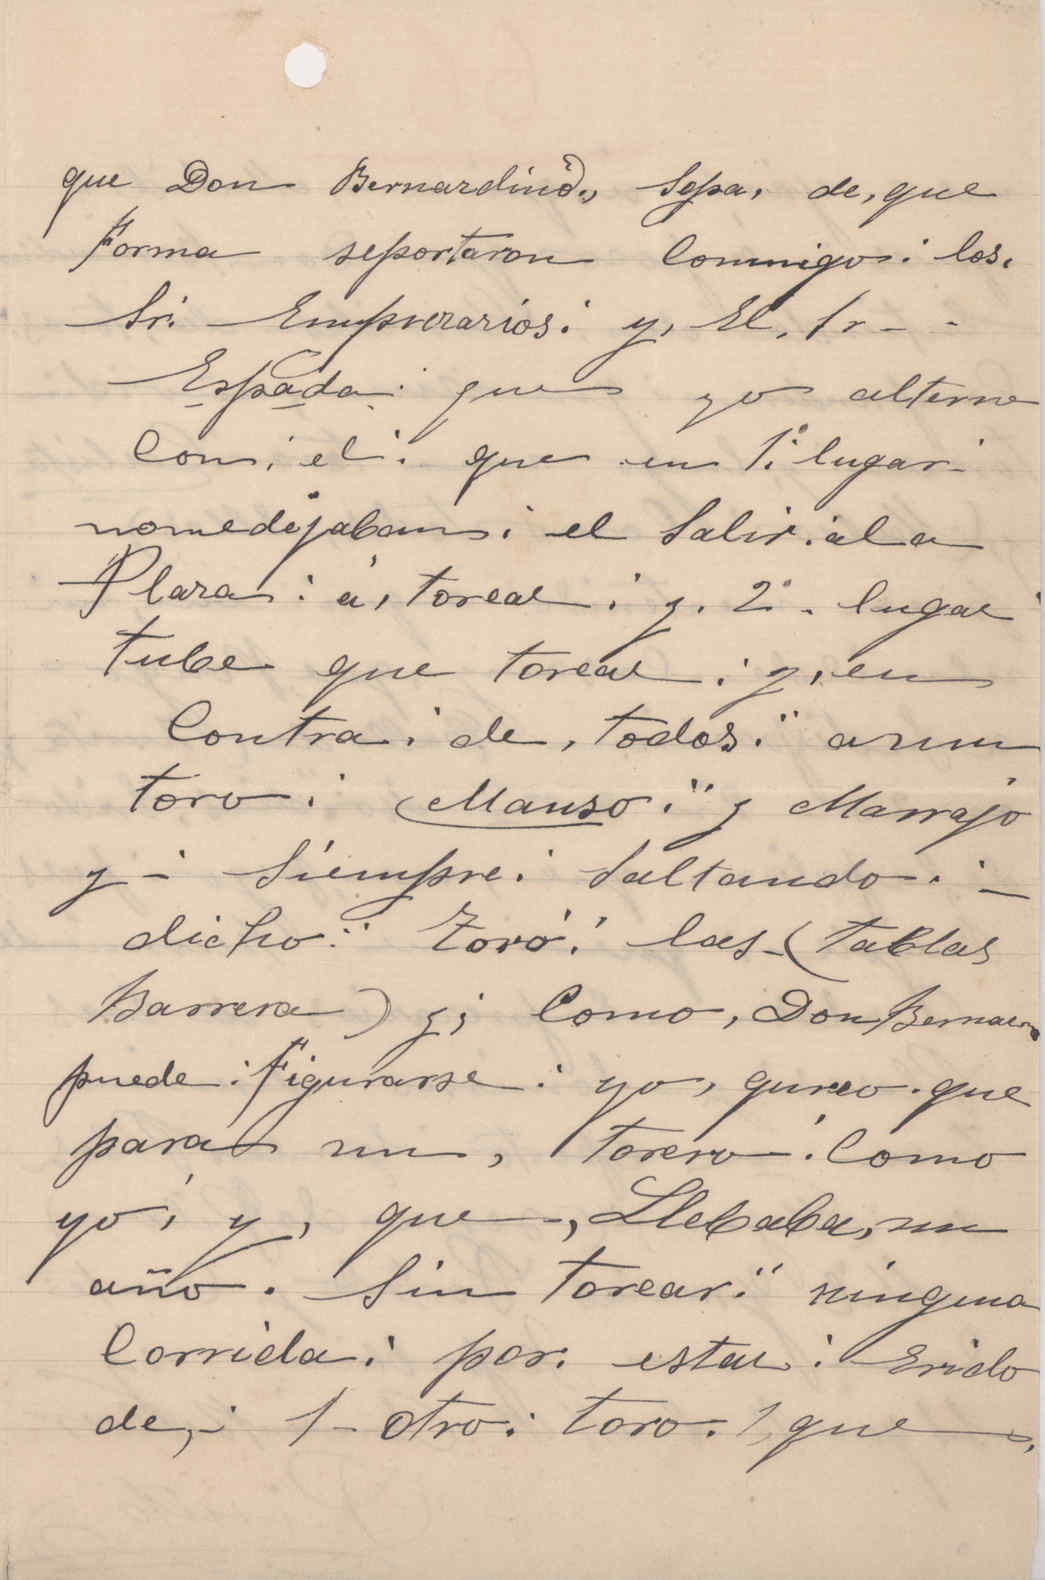 que Don Bernardino., Sepa, de, que
Forma seportaron Conmigo: los.
Sr. Empresarios: y, El, 1r - -
Espada: que yo alterne
Con; el: que en 1º lugar
nomedejaban: el Salir. ala
Plaza: á, torear: y. 2º. lugar
tube que torear: y, en
Contra: de, todos:" aun
toro: (Manso:" y Marrajo
y - Siempre: Saltando. : -
dicho:" Toró: las-(tablas
Barrera) y; Como, Don Bernar
puede: Figurarse: yo, qureo. que
para un, torero: Como
yó, y, que -, Llebaba, un
año. Sin torear:" ninguna
Corrida: por. estar: Erido
de,- 1- otro: toro. 1, que